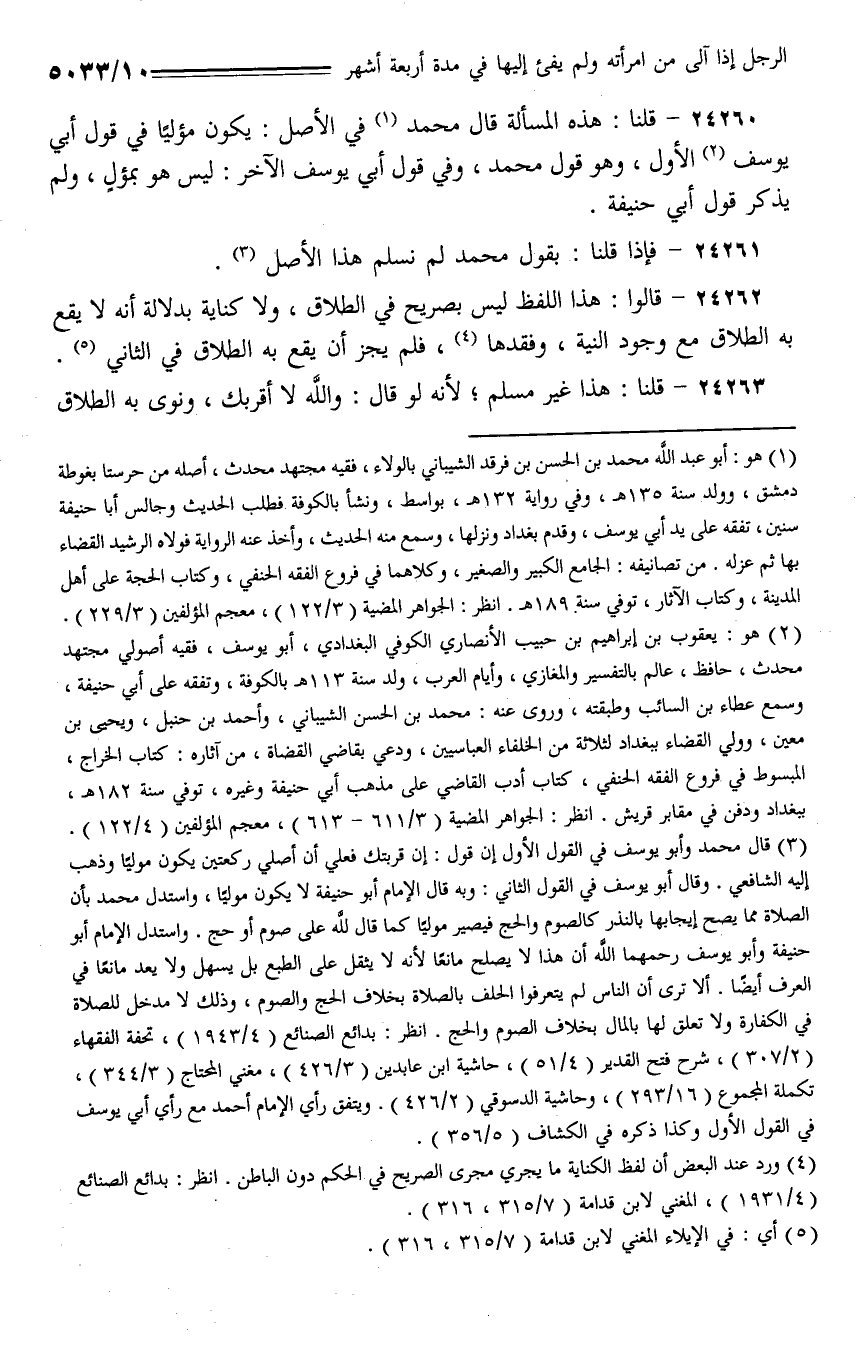 الرجل إذا آلى من امرأته ولم يفئ إليها في مدة أربعة أشهر ٥٠٣٣/١٠
٢٤٢٦٠ – قلنا : هذه المسألة قال محمد (١) في الأصل : يكون مؤليًا في قول أبي
يوسف (٢) الأول ، وهو قول محمد ، وفي قول أبي يوسف الآخر : ليس هو بمؤلٍ ، ولم
يذكر قول أبي حنيفة .
٢٤٢٦١ – فإذا قلنا : بقول محمد لم نسلم هذا الأصل (٣) .
٢٤٢٦٢ – قالوا : هذا اللفظ ليس بصريح في الطلاق ، ولا كناية بدلالة أنه لا يقع
به الطلاق مع وجود النية ، وفقدها (٤) ، فلم يجز أن يقع به الطلاق في الثاني (٥) .
٢٤٢٦٣ – قلنا : هذا غير مسلم ؛ لأنه لو قال : واللَّه لا أقربك ، ونوى به الطلاق
(١) هو : أبو عبد اللَّه محمد بن الحسن بن فرقد الشيباني بالولاء ، فقيه مجتهد محدث ، أصله من حرستا بغوطة
دمشق ، وولد سنة ١٣٥هـ ، وفي رواية ١٣٢هـ ، بواسط ، ونشأ بالكوفة فطلب الحديث وجالس أبا حنيفة
سنين ، تفقه على يد أبي يوسف ، وقدم بغداد ونزلها ، وسمع منه الحديث ، وأخذ عنه الرواية فولاه الرشيد القضاء
بها ثم عزله . من تصانيفه : الجامع الكبير والصغير ، وكلاهما في فروع الفقه الحنفي ، وكتاب الحجة على أهل
المدينة ، وكتاب الآثار ، توفي سنة ١٨٩هـ . انظر : الجواهر المضية ( ١٢٢/٣ ) ، معجم المؤلفين ( ٢٢٩/٣ ) .
(٢) هو : يعقوب بن إبراهيم بن حبيب الأنصاري الكوفي البغدادي ، أبو يوسف ، فقيه أصولي مجتهد
محدث ، حافظ ، عالم بالتفسير والمغازي ، وأيام العرب ، ولد سنة ١١٣هـ بالكوفة ، وتفقه على أبي حنيفة ،
وسمع عطاء بن السائب وطبقته ، وروى عنه : محمد بن الحسن الشيباني ، وأحمد بن حنبل ، ويحيى بن
معين ، وولي القضاء ببغداد لثلاثة من الخلفاء العباسيين ، ودعي بقاضي القضاة ، من آثاره : كتاب الخراج ،
المبسوط في فروع الفقه الحنفي ، كتاب أدب القاضي على مذهب أبي حنيفة وغيره ، توفي سنة ١٨٢هـ ،
ببغداد ودفن في مقابر قريش . انظر : الجواهر المضية ( ٦١١/٣ – ٦١٣ ) ، معجم المؤلفين ( ١٢٢/٤ ) .
(٣) قال محمد وأبو يوسف في القول الأول إن قول : إن قربتك فعلي أن أصلي ركعتين يكون موليًا وذهب
إليه الشافعي . وقال أبو يوسف في القول الثاني : وبه قال الإمام أبو حنيفة لا يكون موليًا ، واستدل محمد بأن
الصلاة مما يصح إيجابها بالنذر كالصوم والحج فيصير موليًا كما قال للَّه على صوم أو حج . واستدل الإمام أبو
حنيفة وأبو يوسف رحمهما اللَّه أن هذا لا يصلح مانعًا لأنه لا يثقل على الطبع بل يسهل ولا يعد مانعًا في
العرف أيضًا . ألا ترى أن الناس لم يتعرفوا الحلف بالصلاة بخلاف الحج والصوم ، وذلك لا مدخل للصلاة
في الكفارة ولا تعلق لها بالمال بخلاف الصوم والحج . انظر : بدائع الصنائع ( ١٩٤٣/٤ ) ، تحفة الفقهاء
( ٣٠٧/٢ ) ، شرح فتح القدير ( ٥١/٤ ) ، حاشية ابن عابدين ( ٤٢٦/٣ ) ، مغني المحتاج ( ٣٤٤/٣ ) ،
تكملة المجموع ( ٢٩٣/١٦ ) ، وحاشية الدسوقي ( ٤٢٦/٢ ) . ويتفق رأي الإمام أحمد مع رأي أبي يوسف
في القول الأول وكذا ذكره في الكشاف ( ٣٥٦/٥ ) .
(٤) ورد عند البعض أن لفظ الكناية ما يجري مجرى الصريح في الحكم دون الباطن . انظر : بدائع الصنائع
( ١٩٣١/٤ ) ، المغني لابن قدامة ( ٣١٥/٧ ، ٣١٦ ) .
(٥) أي : في الإيلاء المغني لابن قدامة ( ٣١٥/٧ ، ٣١٦ ) .